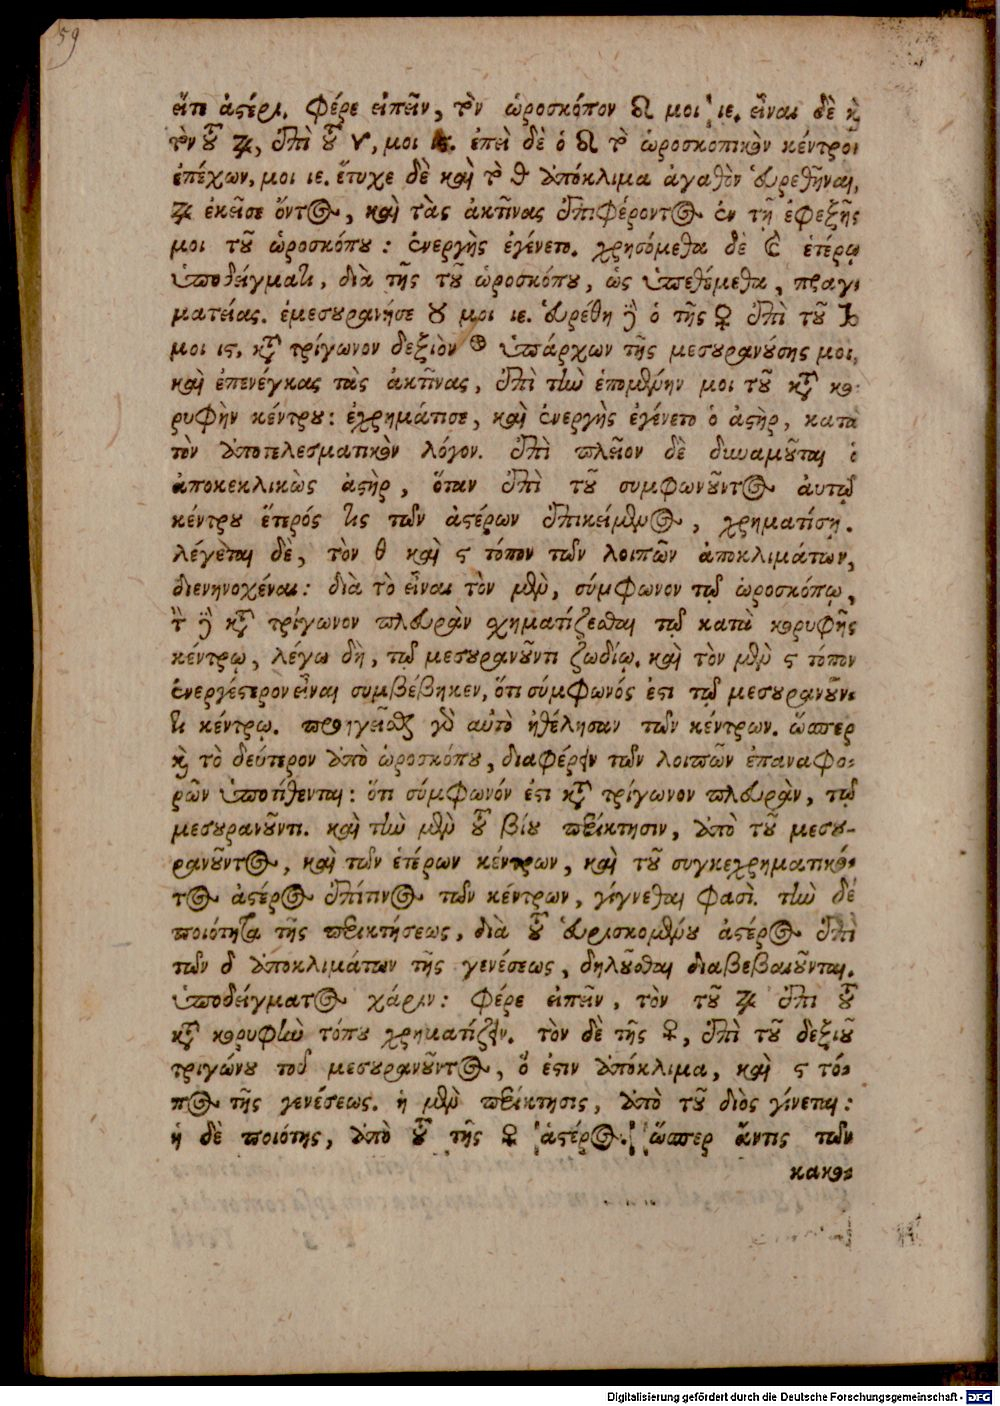 59
εἴτε ἀστέρι. φέρε εἰπεῖν, τὸν ὡροσκόπον ♌ μοι ιε. εἶναι δὲ καὶ
τὸν τοῦ ♃, ἐπὶ τοῦ ♈, μοι ιϛ. ἐπεὶ δὲ ὁ ♌ τὸ ὡροσκοπικὸν κέντρον
ἐπέχων, μοι ιε. ἔτυχε δὲ καὶ τὸ θ ἀπόκλιμα ἀγαθὸν εὑρεθῆναι,
♃ ἐκεῖσε ὄντος, καὶ τὰς ἀκτῖνας ἐπιφέροντος ἐν τῇ ἐφεξῆς
μοι τοῦ ὡροσκόπου : ἐνεργὴς ἐγένετο. χρησόμεθα δὲ καὶ ἑτέρῳ
ὑποδείγματι, διὰ τῆς τοῦ ὡροσκόπου, ὡς ὑπεθέμεθα, πραγ-
ματείας. ἐμεσουράνησε ♉ μοι ιε. εὑρέθη καὶ ὁ τῆς ♀ ἐπὶ τοῦ ♑
μοι ιϛ, κατὰ τρίγωνον δεξιὸν ὑπάρχων τῆς μεσουρανούσης μοι,
καὶ ἐπενέγκας τὰς ἀκτῖνας, ἐπὶ τὴν ἑπομένην μοι τοῦ κατὰ κο-
ρυφὴν κέντρου : ἐχρημάτισε, καὶ ἐνεργὴς ἐγένετο ὁ ἀστὴρ, κατὰ
τὸν ἀποτελεσματικὸν λόγον. ἐπὶ πλεῖον δὲ δυναμοῦται ὁ
ἀποκεκλικὼς ἀστὴρ, ὅταν ἐπὶ τοῦ συμφωνοῦντος αὐτῷ
κέντρου ἕτερός τις τῶν ἀστέρων ἐπικείμενος, χρηματίσῃ.
λέγεται δὲ, τὸν θ καὶ ϛ τόπον τῶν λοιπῶν ἀποκλιμάτων,
διενηνοχέναι : διὰ τὸ εἶναι τὸν μὲν, σύμφωνον τῷ ὡροσκόπῳ,
τὸν καὶ κατὰ τρίγωνον πλευρὰν σχηματίζεσθαι τῷ κατὰ κορυφῆς
κέντρῳ, λέγω δὴ, τῷ μεσουρανοῦντι ζωδίῳ. καὶ τὸν μὲν ϛ τόπον
ἐνεργέστερον εἶναι συμβέβηκεν, ὅτι σύμφωνός ἐστι τῷ μεσουρανοῦν-
τι κέντρῳ. προηγεῖσθαι γὰρ αὐτὸ ἠθέλησαν τῶν κέντρων. ὥσπερ
καὶ τὸ δεύτερον ἀπὸ ὡροσκόπου, διαφέρειν τῶν λοιπῶν ἐπαναφο-
ρῶν ὑποτίθενται : ὅτι σύμφωνόν ἐστι κατὰ τρίγωνον πλευρὰν, τῷ
μεσουρανοῦντι. καὶ τὴν μὲν τοῦ βίου περίκτησιν, ἀπὸ τοῦ μεσου-
ρανοῦντος, καὶ τῶν ἑτέρων κέντρων, καὶ τοῦ συγκεχρηματικό-
τος ἀστέρος ἐπί τινος τῶν κέντρων, γίγνεσθαι φασί. τὴν δὲ
ποιότητα τῆς περικτήσεως, διὰ τοῦ εὑρισκομένου ἀστέρος ἐπὶ
τῶν δ ἀποκλιμάτων τῆς γενέσεως, δηλοῦσθαι διαβεβαιοῦνται.
ὑποδείγματος χάριν : φέρε εἰπεῖν, τὸν τοῦ ♃ ἐπὶ τοῦ
κατὰ κορυφὴν τόπου χρηματίζειν. τὸν δὲ τῆς ♀, ἐπὶ τοῦ δεξιοῦ
τριγώνου τοῦ μεσουρανοῦντος, ὅ ἐστιν ἀπόκλιμα, καὶ ϛ τό-
πος τῆς γενέσεως. ἡ μὲν περίκτησις, ἀπὸ τοῦ διὸς γίνεται :
ἡ δὲ ποιότης, ἀπὸ τοῦ τῆς ♀ ἀστέρος. ὥσπερ ἄν τις τῶν
κακο-
Digitalisierung gefördert durch die Deutsche Forschungsgemeinschaft - DFG